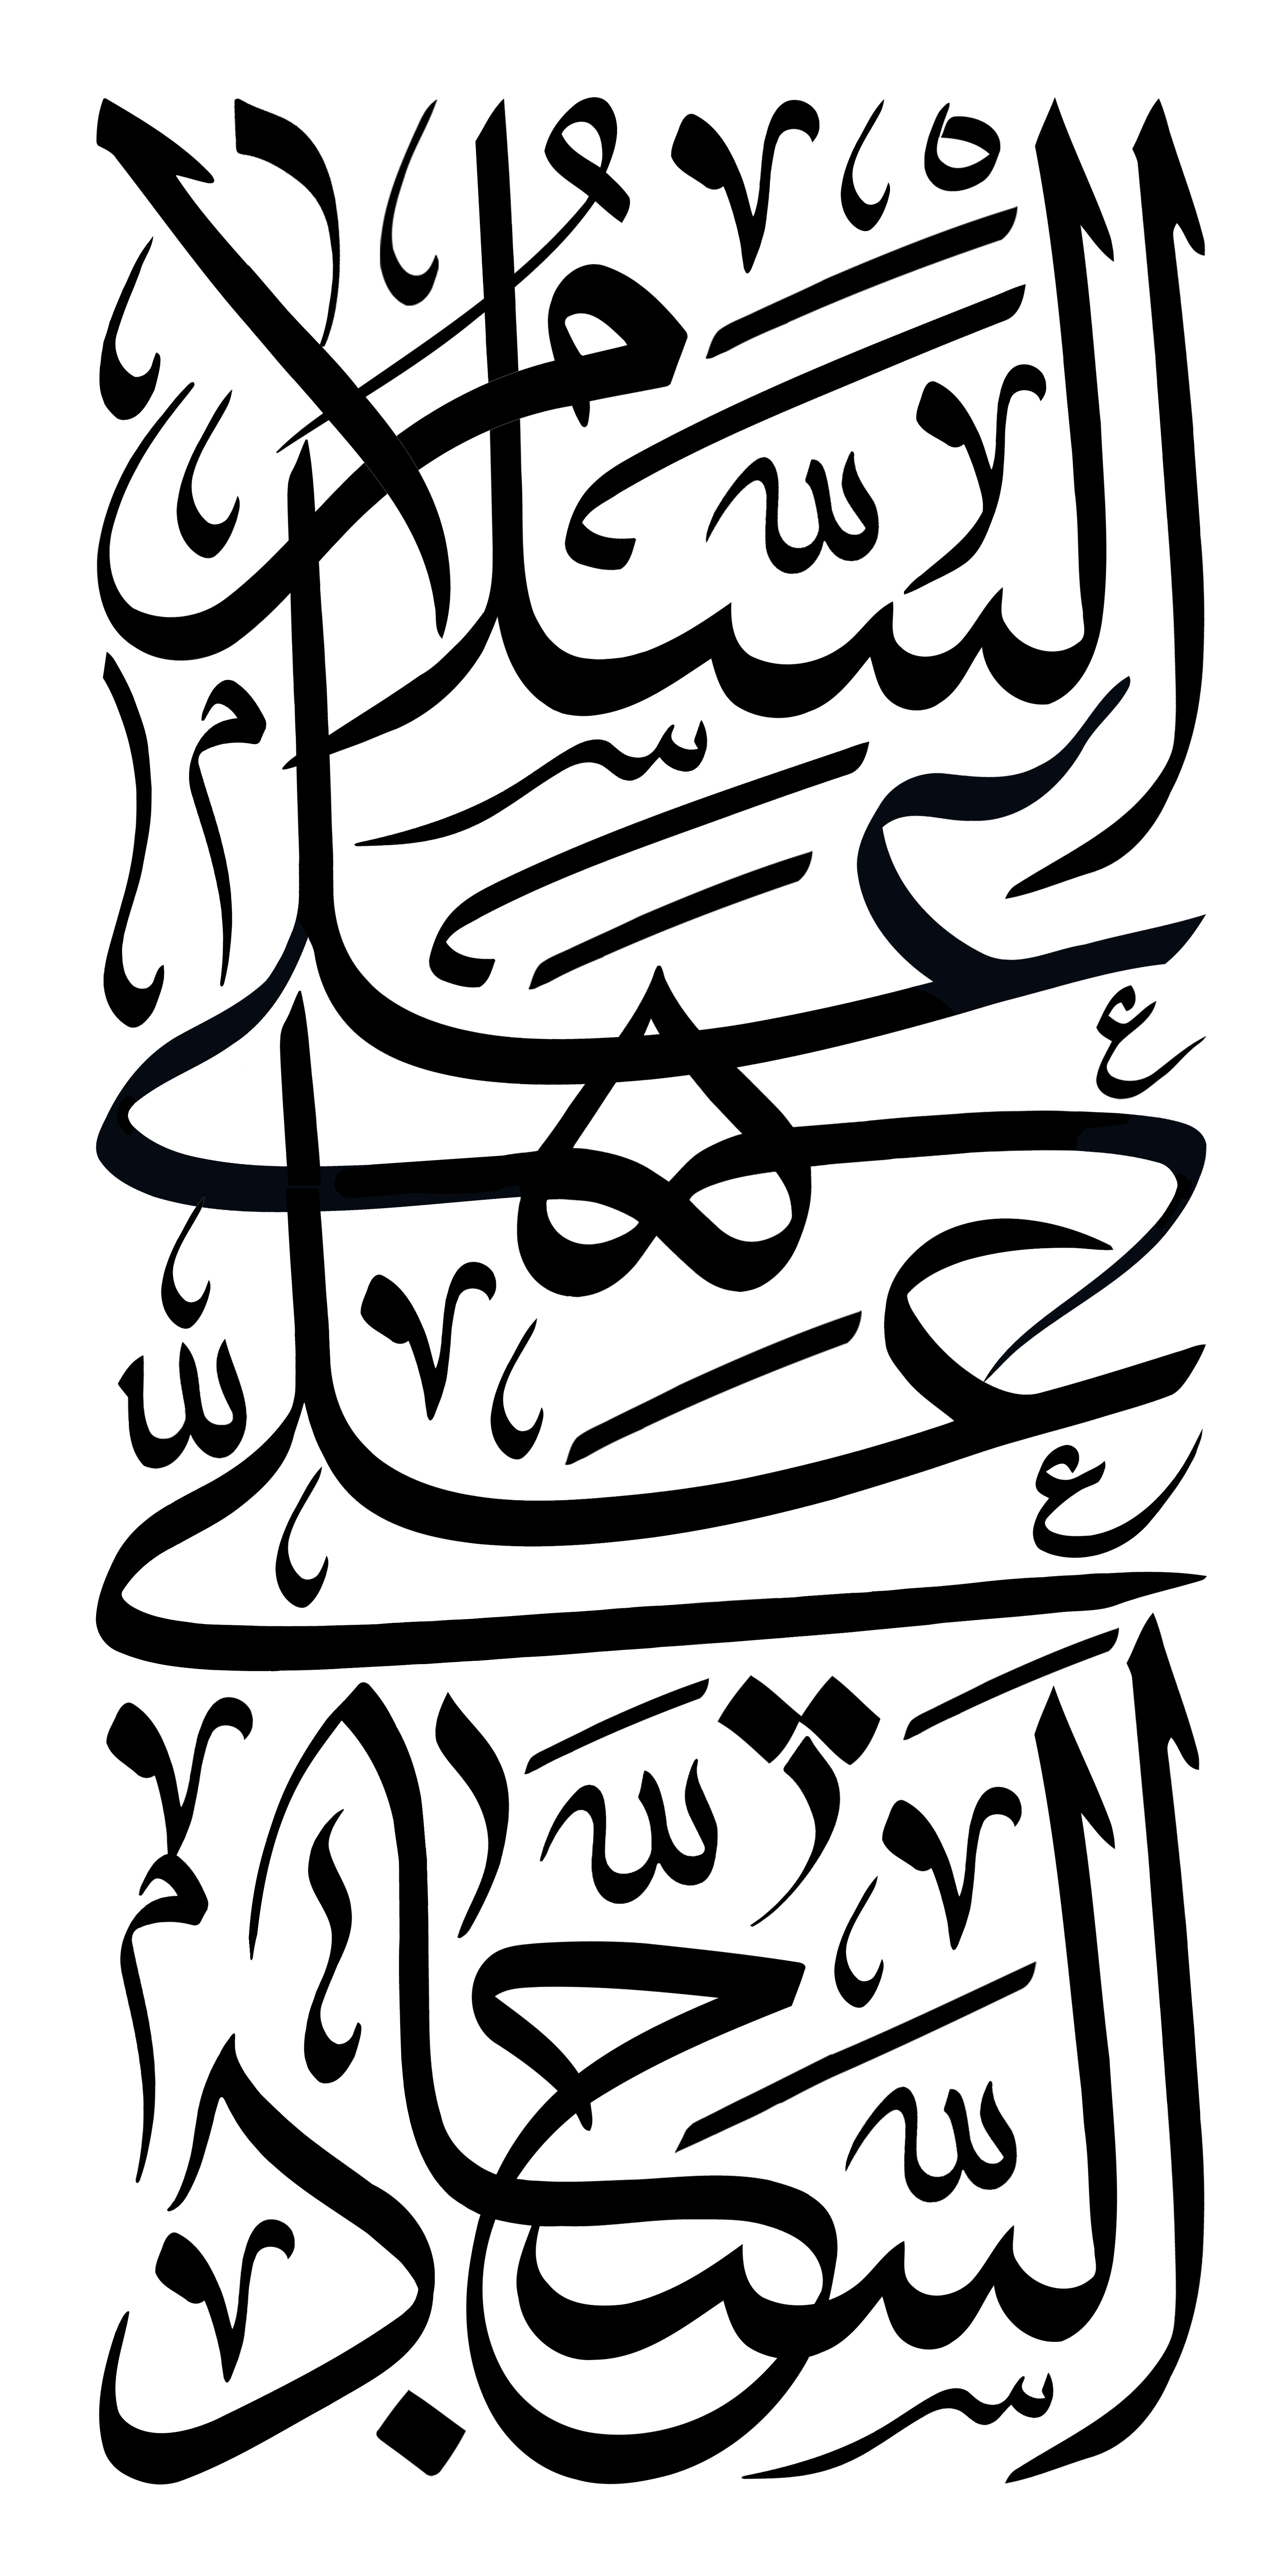 السَّلَامُ
عَلَى
عَلِي
السَّجَّادِ